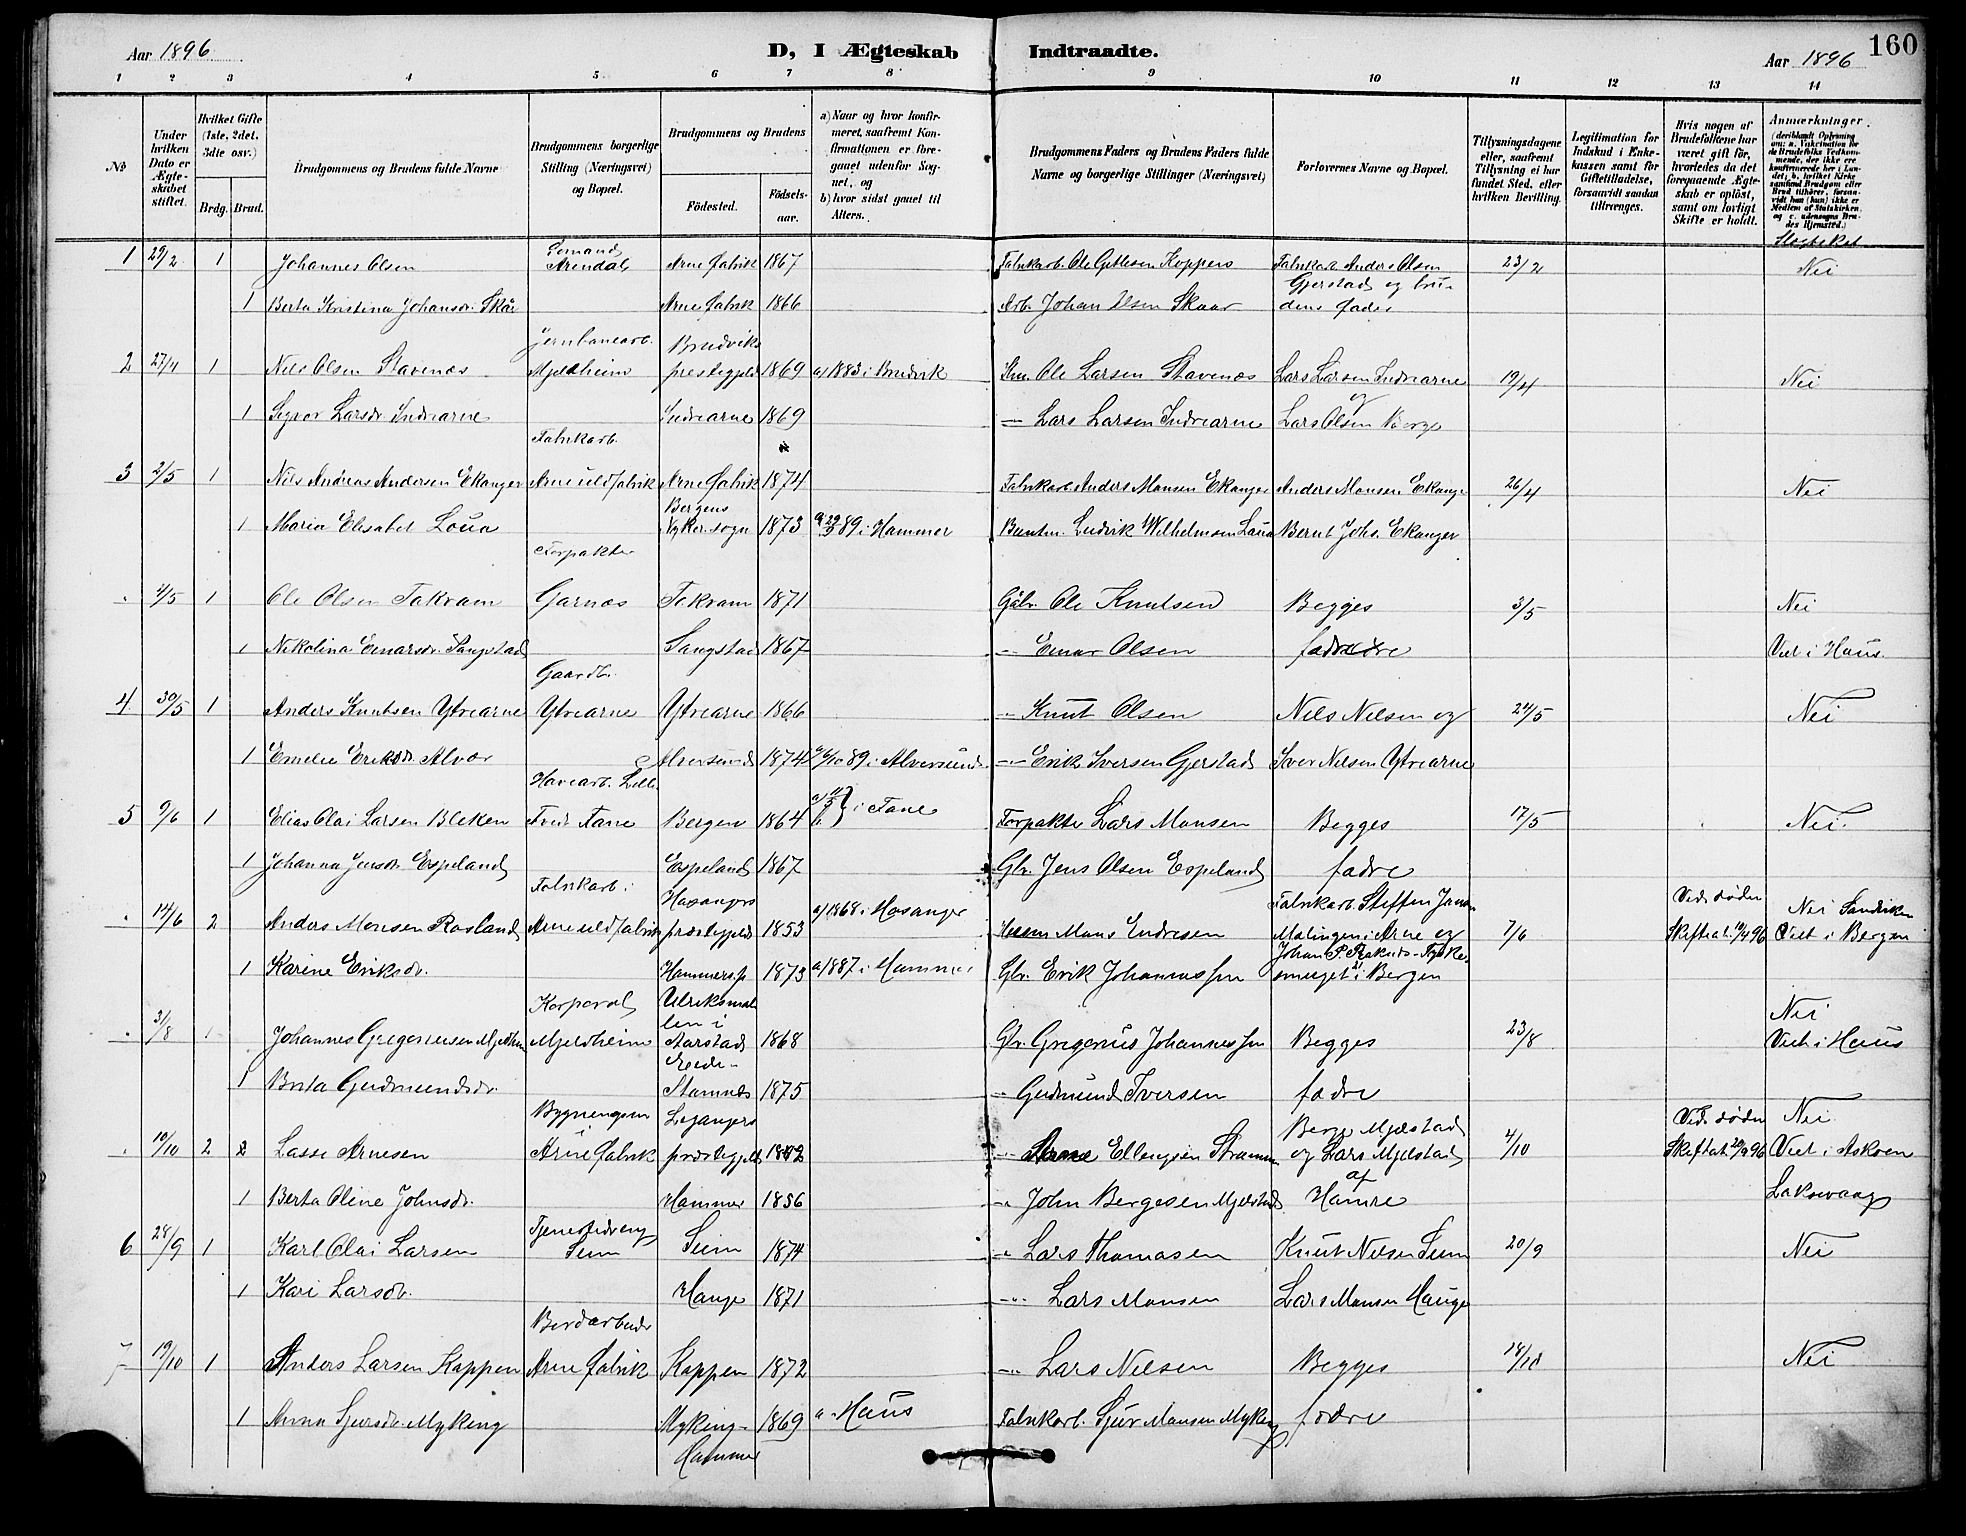 Aar 1896
D, I Ægteskab Indtraadte.
Aar 1896
160
1 2 3 4 5 6 7 8 9 10 11 12 13 14
No
Under hvilken Dato er Ægteskabet stiftet.
Hvilket Gifte (1ste, 2det, 3die osv.)
Brdg. Brud.
Brudgommens og Brudens fulde Navne
Brudgommens borgerlige Stilling (Næringsvei) og Bopæl.
Brudgommens og Brudens
Fødested.
Fødselsaar.
a) Naar og hvor konfirmeret, saafremt Konfirmationen er foregaaet udenfor Sognet, og
b) hvor sidst gaaet til Alters.
Brudgommens Faders og Brudens Faders fulde Navne og borgerlige Stillinger (Næringsvei)
Forlovernes Navne og Bopæl.
Tillysningsdagene eller, saafremt Tillysning ei har fundet Sted, efter hvilken Bevilling.
Legitimation for Indskud i Enkekassen samt for Giftetilladelse, forsaavidt saadan tiltrænges.
Hvis nogen af Brudefolkene har været gift før, hvorledes da det foregaaende Ægteskab er opløst, samt om lovligt Skifte er holdt.
Anmærkninger.
(deriblandt Oplysning om: a. Vakcination for de Brudefolks Vedkommende, der ikke ere konfirmerede her i Landet, b. hvilket Kirkesamfund Brudgom eller Brud tilhører, forsaavidt han (hun) ikke er Medlem af Statskirken, og c. udensogns Brudes Hjemsted.)
Slægtskab
1 29/2 1 Johannes Olsen Sømand Arendal Arne fabrik 1867 Fabrikarb. Ole Gittlesen Koppers Fabrikarb. Anders Olsen 23/2 Nei
1 Berta Kristina Johansdr. Skår Arne fabrik 1866 Arb. Johan Olsen Skaar Gjerstad og brudens fader
2 27/4 1 Nils Olsen Stavenes Jernbanearb. Mjeldheim Brudviks prestegjeld 1869 a) 1883 i Brudvik Gbr. Ole Larsen Stavenes Lars Larsen Indrearne 19/4 Nei
1 Sygvor Larsdr. Indrearne Indrearne 1869 — Lars Larsen Indrearne og Lars Olsen
3 2/5 1 Nils Andreas Andersen Ekanger Fabrikarb. Arne uldfabrik Arne fabrik 1874 Fabrikarb. Anders Monsen Ekanger Anders Monsen Ekanger 26/4 Nei
1 Maria Elisabet Loua Bergens Nykor. sogn 1873 89 i Hammer Buntm. Ludvik Wilhelmsen Laua Bernt Johs. Ekanger
. 4/5 1 Ole Olsen Takvam Forpakter Garnæs Takvam 1871 Gbr. Ole Knutsen Begges 3/5 Nei
1 Nikolina Einarsdr. Sangstad Sangstad 1867 — Einar Olsen fædre Viet i Haus.
4 30/5 1 Anders Knutsen Ytrearne Gaardbr. Ytrearne Ytrearne 1866 — Knut Olsen Nils Nilsen og 24/5 Nei
1 Emelie Eriksdr. Alvær Alversund 1874 a) 6/10 89 i Alversund — Erik Iversen Gjerstad Iver Nilsen Ytrearne
5 9/6 1 Elias Olai Larsen Bleken Havearb. Lille Tveit Fane Bergen 1864 i Fane Forpakter Lars Monsen Begges 17/5 Nei.
1 Johanna Jensdr. Espeland Espeland 1867 Gbr. Jens Olsen Espeland fædre
. 14/6 2 Anders Monsen Rosland Fabrikarb. i Arne uldfabrik Hosangers prestegjeld 1853 a) 1868 i Hosanger Husm. Mons Endresen Fabrikarb. Steffen Jensen Mælingen i Arne og 7/6 Ved døden Skifteat. 11/4 96 Nei Sandviken Viet i Bergen
1 Karine Eriksdr. Hammers p. 1873 a) 1887 i Hammer Gbr. Erik Johannessen Johan P. smuget 21 i Bergen
. 31/8 1 Johannes Gregoriusen Mjeldheim Korporal Mjeldheim Ulriksmarken i Aarstad 1868 Gbr. Gregorius Johannessen Begges 23/8 Nei Viet i Haus
1 Brita Gudmundsdr. Eide - Stamnes 1875 — Gudmund Iversen fædre
. 10/10 2 2 Lasse Arnesen Bygningssn. i Arne fabrik Leganger prestegjeld 1842 — Arne Ellingsen Berge Mjelstad og Lars Mjelstad 4/10 Ved døden Skifteat. 20/9 96 Nei Viet i Askøen
1 Berta Oline Johnsdr. Hammer 1856 — John Bergesen Mjelstad af Hamre Laksevaag
6 28/9 1 Karl Olai Larsen Tjenestedreng Seim Seim 1874 — Lars Thomasen Knut Nilsen Seim 20/9 Nei
1 Kari Larsdr. Hauge 1871 — Lars Monsen Lars Monsen Hauge
7 19/10 1 Anders Larsen Kappen Arne fabrik Kappen 1872 — Lars Nilsen Begges 18/10 Nei
1 Anna Sjursdr. Myking Myking - Hammer 1869 a - Haus Fabrikarb. Sjur Monsen Myking fædre